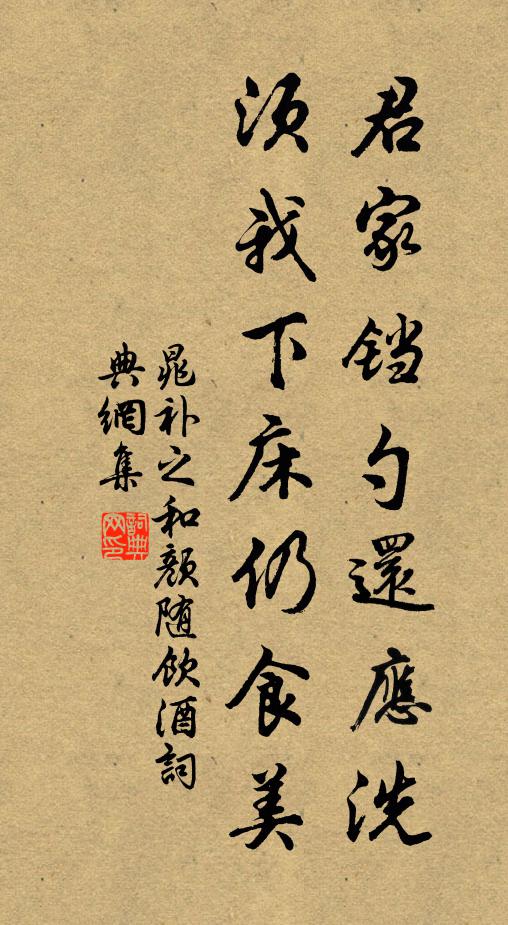 君家铛勺還應洗
須我下床仍食美
晁补之和顏随飲酒詞
典網集
詞典網印